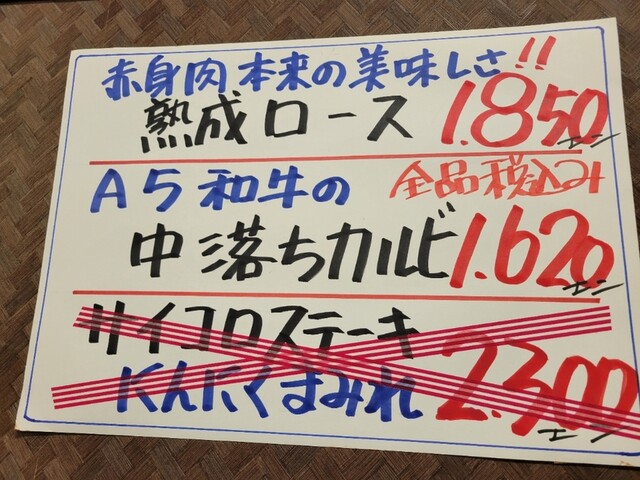 赤身肉本来の美味しさ!!
熟成ロース 1.850エン
全品税込み
A5和牛の
中落ちカルビ 1.620エン
サイコロステーキ
にんにくまみれ 2.300エン